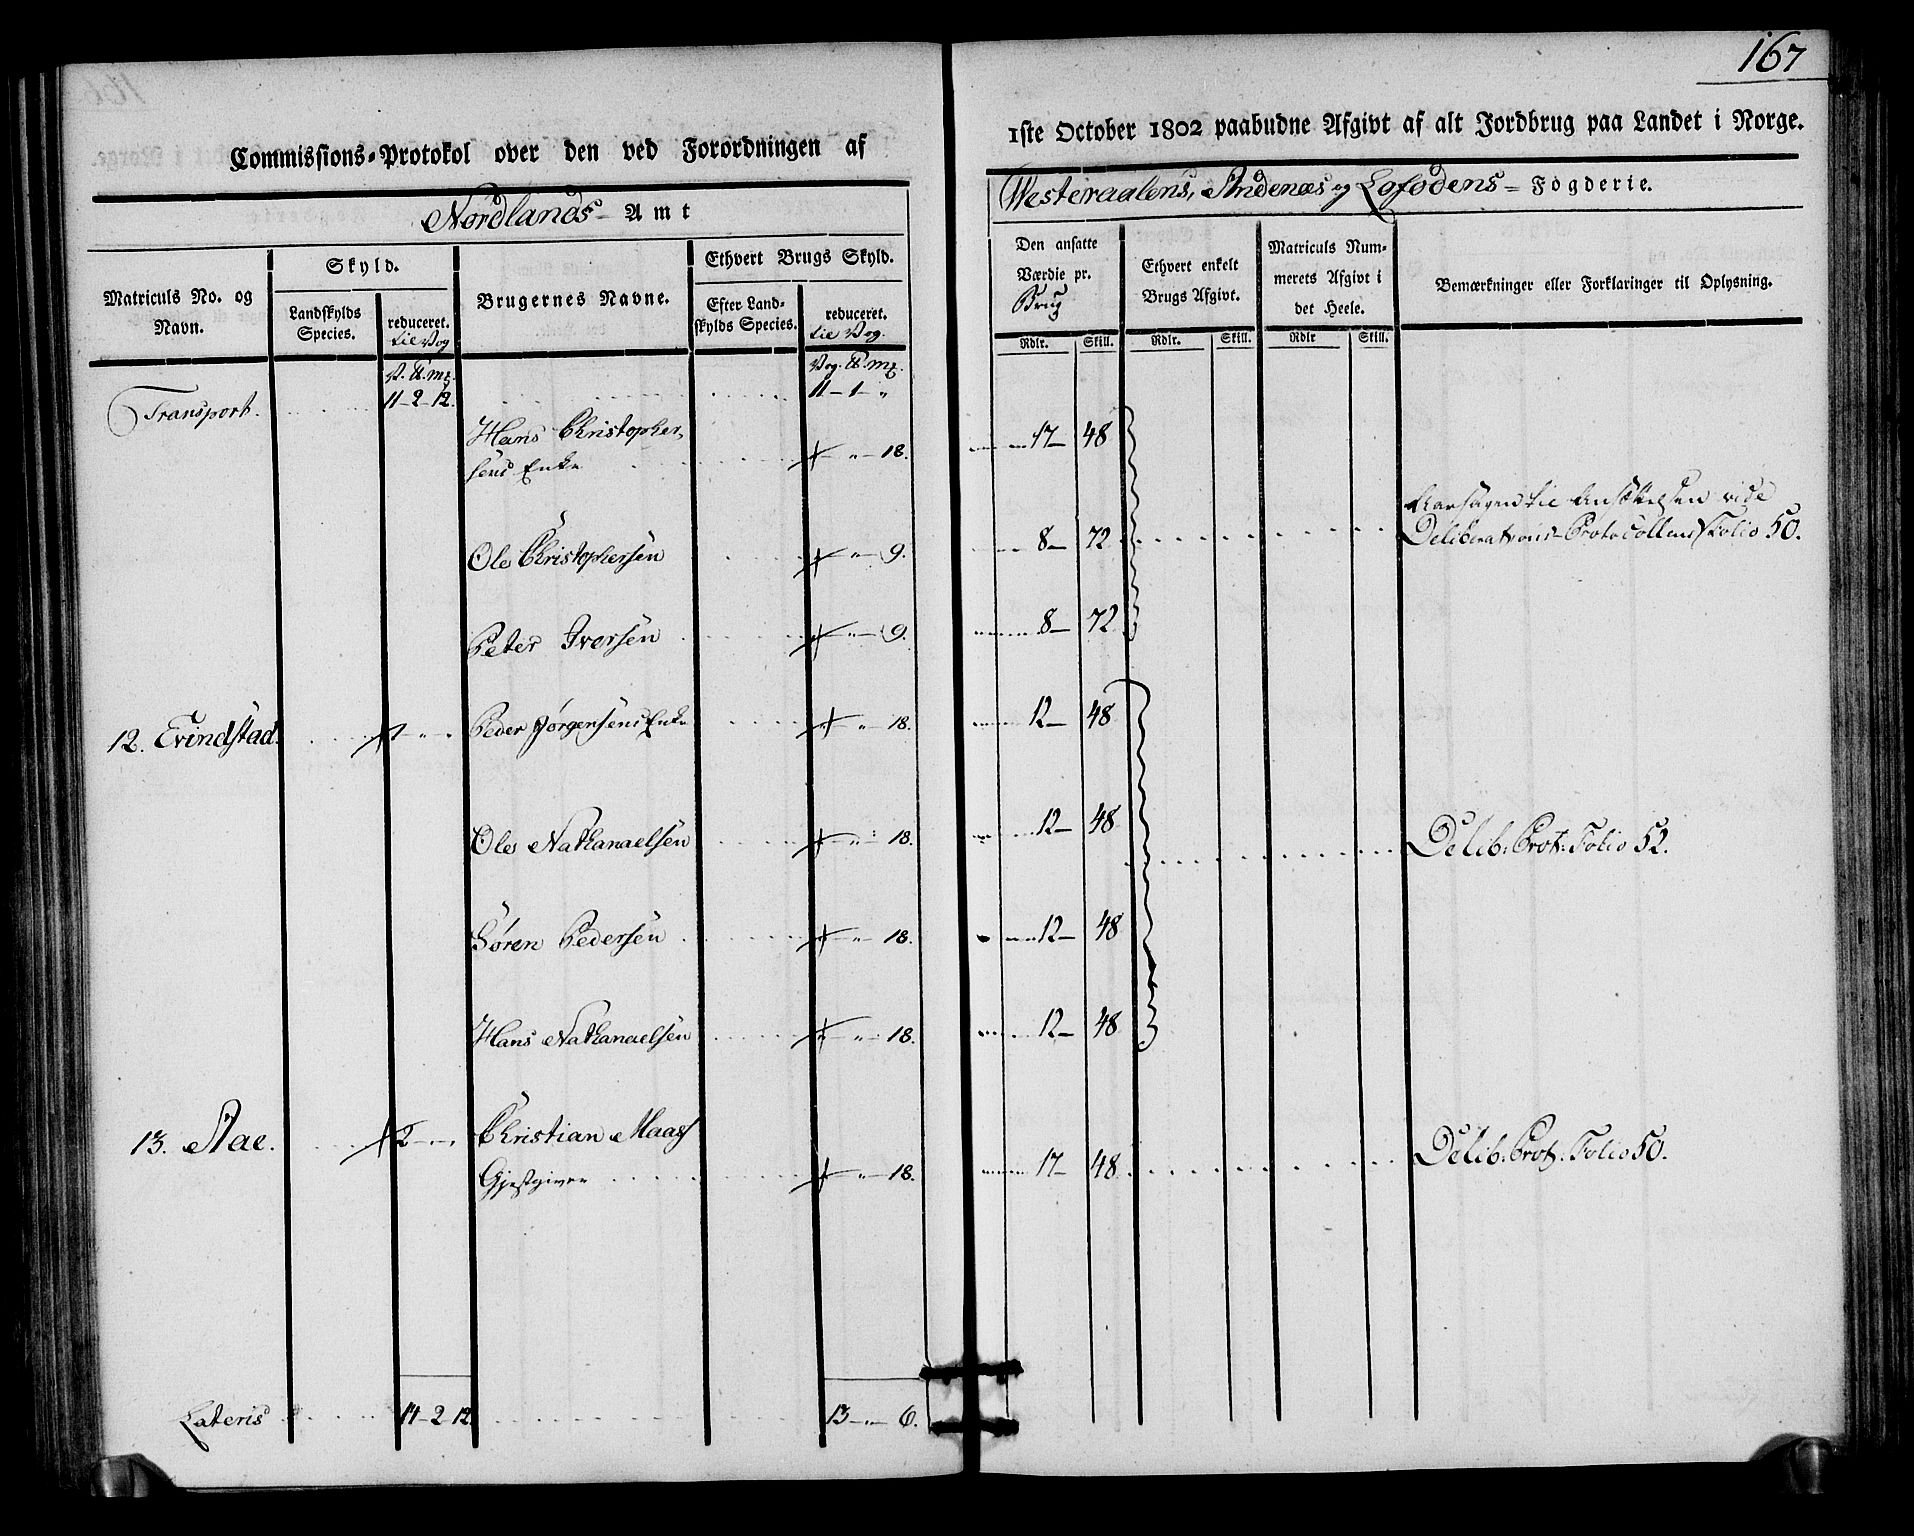 167
Commissions-Protokol over den ved Forordningen af
1ste October 1802 paabudne Afgivt af alt Jordbrug paa Landet i Norge.
Nordlands Amt
Westeraalens, Andenæs og Lofodens Fogderie.
Matriculs No. og Navn.
Skyld.
Landskylds Species.
reduceret. til Vog
Brugernes Navne.
Ethvert Brugs Skyld.
Efter Landskylds Species.
reduceret. til Vog.
Den ansatte Værdie pr. Brug
Ethvert enkelt Brugs Afgivt.
Matriculs Nummerets Afgivt i det Heele.
Bemærkninger eller Forklaringer til Oplysning.
Rdlr. Skill. Rdlr. Skill. Rdlr Skill.
V. ℔. mk. Vog. ℔. mk.
Transport. 11-2-12. 11-1-„
Hans Christopher-
sens Enke „-18. 17- 48
Aarsagen til Ansættelsen vide
Ole Christophersen „-9. 8- 72 Deliberations-Protocollens Folio 50.
Peter Iversen „-9. 8- 72
12. Evindstad. 1 „ „ Peder Jørgensens Enke „ 18. 12- 48
Ole Nathanaelsen „-18. 12- 48 Delib: Prot: Folio 52.
Søren Pedersen „-18. 12- 48
Hans Nathanaelsen „-18. 12- 48
13. Aae. 2-„-„ Christian Maas
Gjestgiver „-18. 17- 48 Delib: Prot: Folio 50.
Lateris 14-2 12 13-„-6.